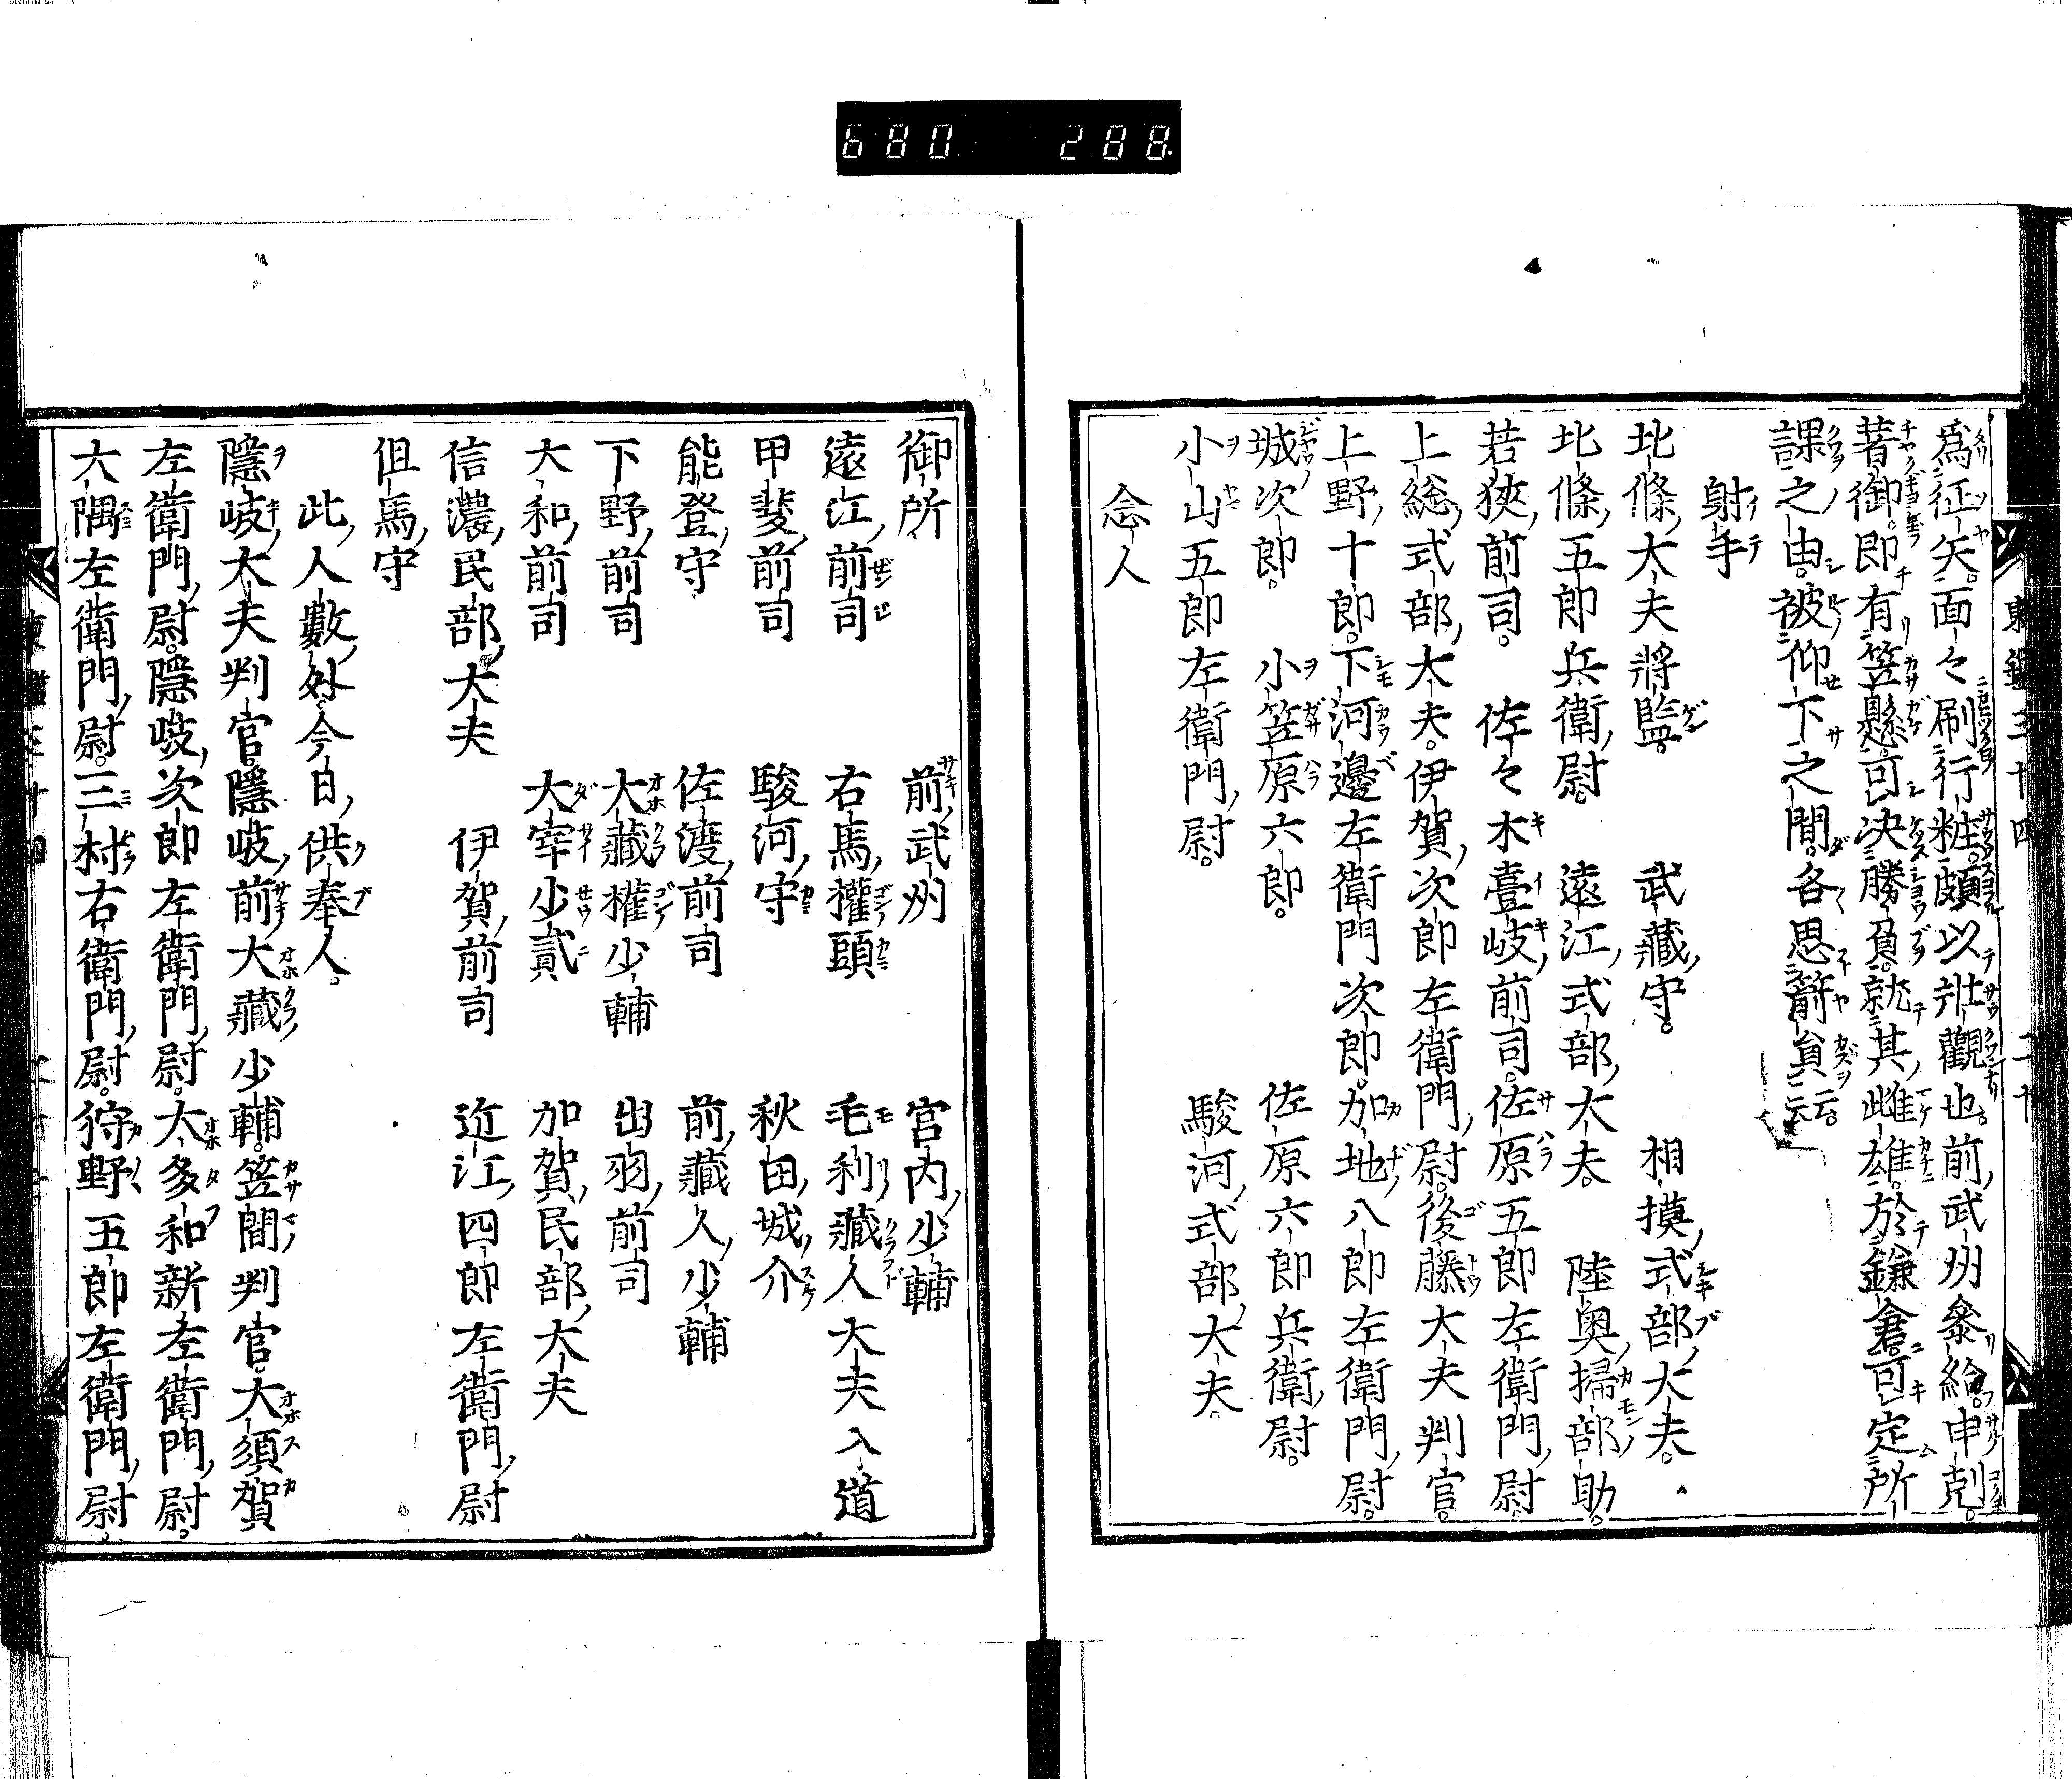 680 288
東鑑三十四 二十
爲征矢。面々刷行粧。頗以壯觀也。前武州參給。申剋。
著御。即有笠懸。可决勝負。就其雌雄。於鎌倉。可定所
課之由。被仰下之間。各思箭員云云。
射手
北條大夫將監。 武藏守。 相摸式部大夫。
北條五郎兵衛尉。 遠江式部大夫。 陸奥掃部助。
若狹前司。 佐々木壹岐前司。佐原五郎左衛門尉。
上総式部大夫。伊賀次郎左衛門尉。後藤大夫判官。
上野十郎。下河邊左衛門次郎。加地八郎左衛門尉。
城次郎。 小笠原六郎。 佐原六郎兵衛尉。
小山五郎左衛門尉。 駿河式部大夫。
念人
御所 前武州 宮内少輔
遠江前司 右馬權頭 毛利藏人大夫入道
甲斐前司 駿河守 秋田城介
能登守 佐渡前司 前藏人少輔
下野前司 大藏權少輔 出羽前司
大和前司 大宰少貳 加賀民部大夫
信濃民部大夫 伊賀前司 近江四郎左衛門尉
但馬守
此人數外。今日供奉人。
隱岐大夫判官。隱岐前大藏少輔。笠間判官。大須賀
左衛門尉。隱岐次郎左衛門尉。大多和新左衛門尉。
大隅左衛門尉。三村右衛門尉。狩野五郎左衛門尉